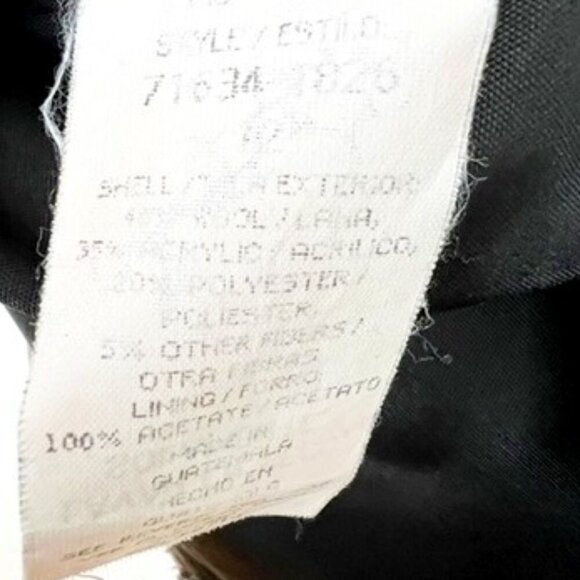 STYLE/ESTILO:
71634-1826
SHELL/TELA EXTERIOR:
40% WOOL/LANA,
35% ACRYLIC/ACRILICO,
20% POLYESTER/
POLIESTER,
5% OTHER FIBERS/
OTRA FIBRAS
LINING/FORRO
100% ACETATE/ACETATO
MADE IN
GUATEMALA
HECHO EN
SEE REVERSE